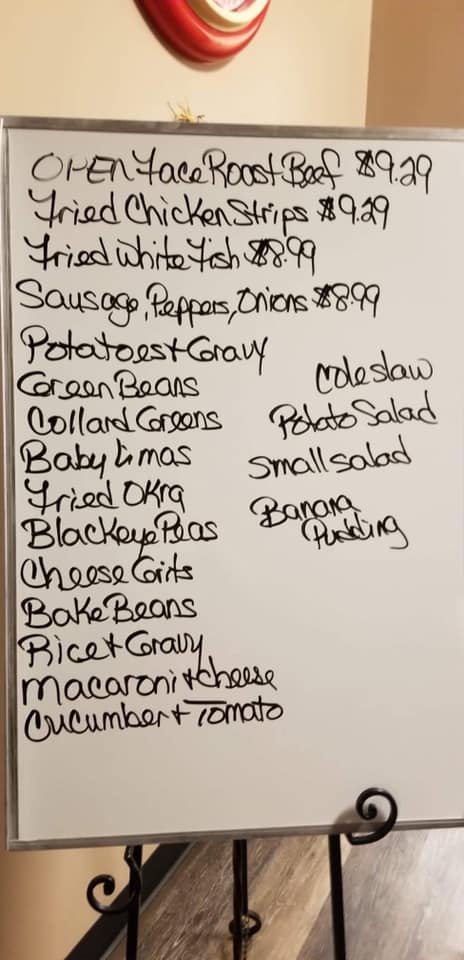 OPEN Face Roost Beef $9.29
Fried Chicken Strips $9.29
Fried White Fish $8.99
Sausage, Peppers, Onions $8.99
Potatoes + Gravy
Green Beans
Collard Greens
Baby Limas
Fried Okra
Blackeye Peas
Cheese Grits
Bake Beans
Rice + Gravy
Macaroni + cheese
Cucumber + Tomato
Coleslaw
Potato Salad
Small salad
Banana
Pudding